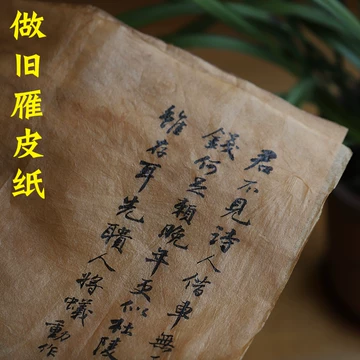 做旧雁皮纸
君不見詩人借車無
錢何足賴晚年更似杜陵
雖存耳先聵人將蟻動作